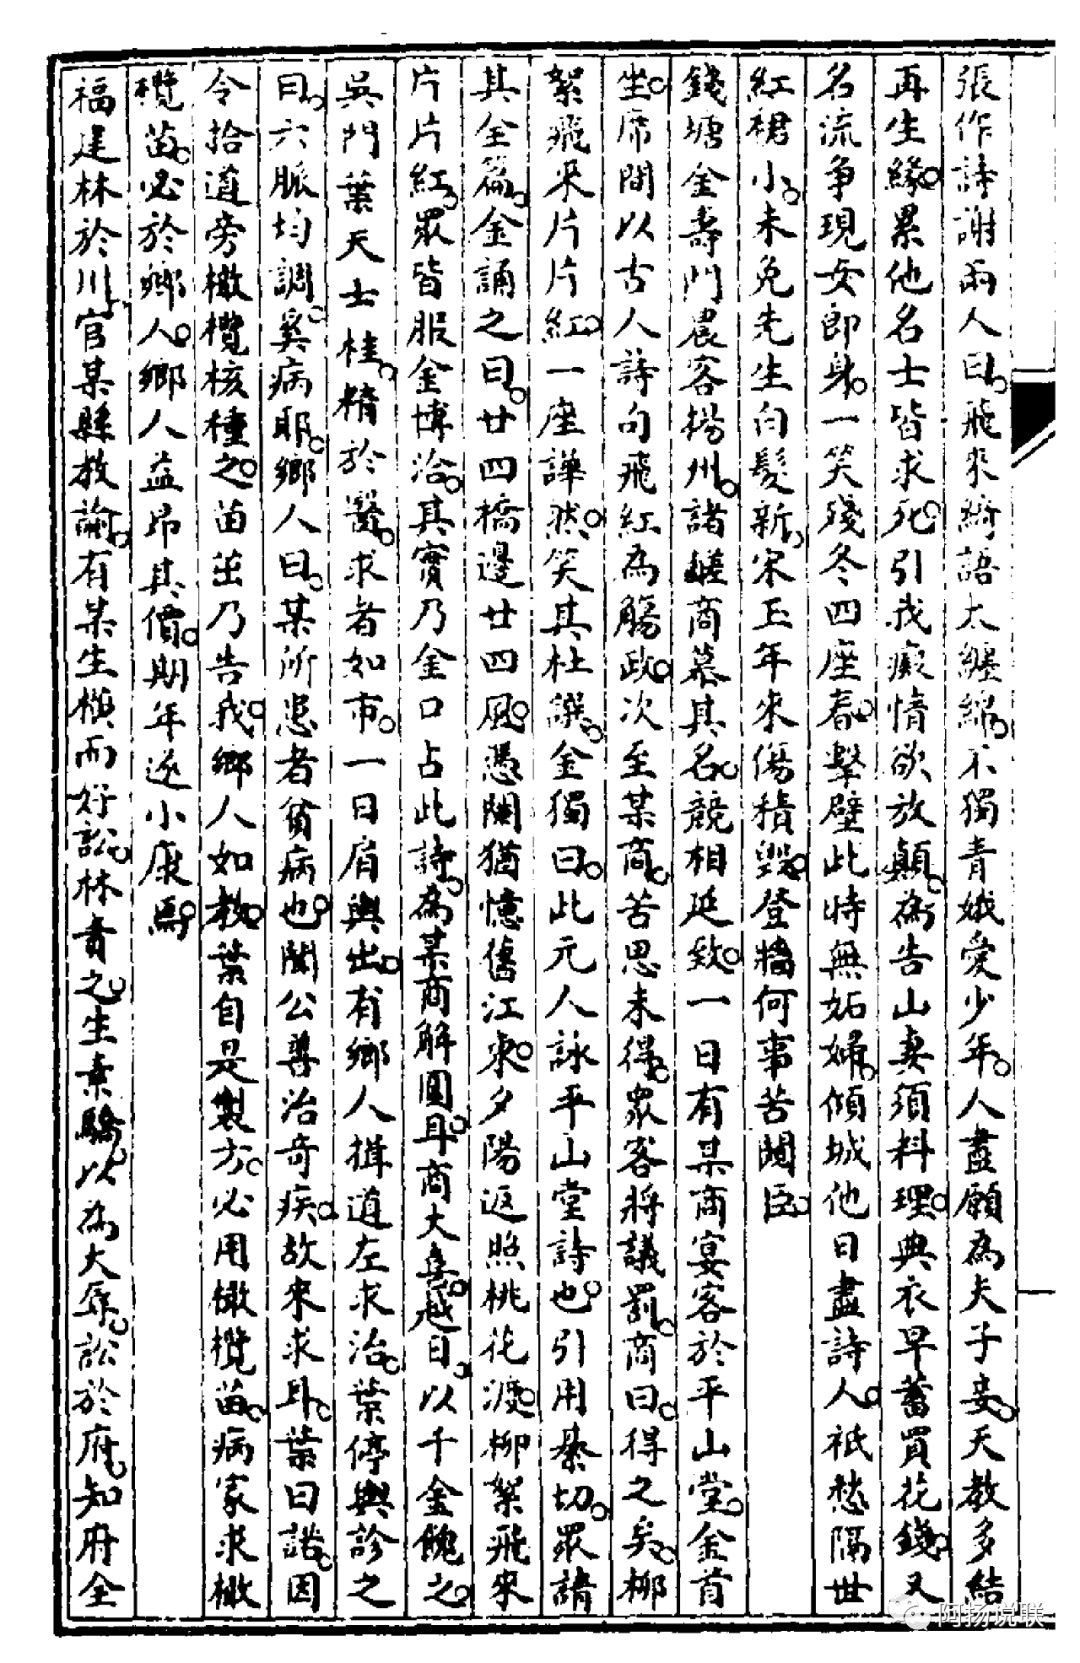 張作詩謝兩人曰飛來綺語太纏綿不獨青娥愛少年人盡願為夫子妾天教多結
再生緣累他名士皆求死引我癡情欲放顛為告山妻須料理典衣早蓄買花錢又
名流爭現女郎身一笑殘冬四座春擊壁此時無妬婦傾城他日盡詩人祇愁隔世
紅裙小未免先生白髮新宋玉年來傷積毀登牆何事苦闚臣
錢塘金壽門農客揚州諸鹺商慕其名競相延致一日有某商宴客於平山堂金首
坐席間以古人詩句飛紅為觴政次至某商苦思未得眾客將議罰商曰得之矣柳
絮飛來片片紅一座譁然笑其杜譔金獨曰此元人詠平山堂詩也引用綦切眾請
其全篇金誦之曰廿四橋邊廿四風憑闌猶憶舊江東夕陽返照桃花渡柳絮飛來
片片紅眾皆服金博洽其實乃金口占此詩為某商解圍耳商大喜越日以千金餽之
吳門葉天士桂精於醫求者如市一日肩輿出有鄉人揖道左求治葉停輿診之
曰六脈均調奚病耶鄉人曰某所患者貧病也聞公善治奇疾故來求耳葉曰諾因
令拾道旁橄欖核種之苗茁乃告我鄉人如教葉自是製方必用橄欖苗病家求橄
欖苗必於鄉人鄉人益昂其價期年遂小康焉
福建林於川官某縣教諭有某生橫而好訟林責之生素驕以為大辱訟於府知府全
阿扬说联